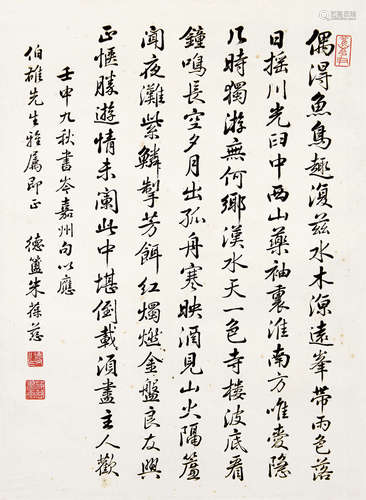 偶得魚鳥趣復茲水木涼遠峯帶雨色落
日搖川光臼中西山藥袖裏淮南方唯愛隱
几時獨游無何鄉漢水天一色寺樓波底看
鐘鳴長空夕月出孤舟寒映酒見山火隔簾
聞夜灘紫鱗掣芳餌紅燭燃金盤良友興
正愜勝遊情未闌此中堪倒載須盡主人歡
壬申九秋書岑嘉州句以應
伯雄先生雅屬即正 德簠朱葆慈